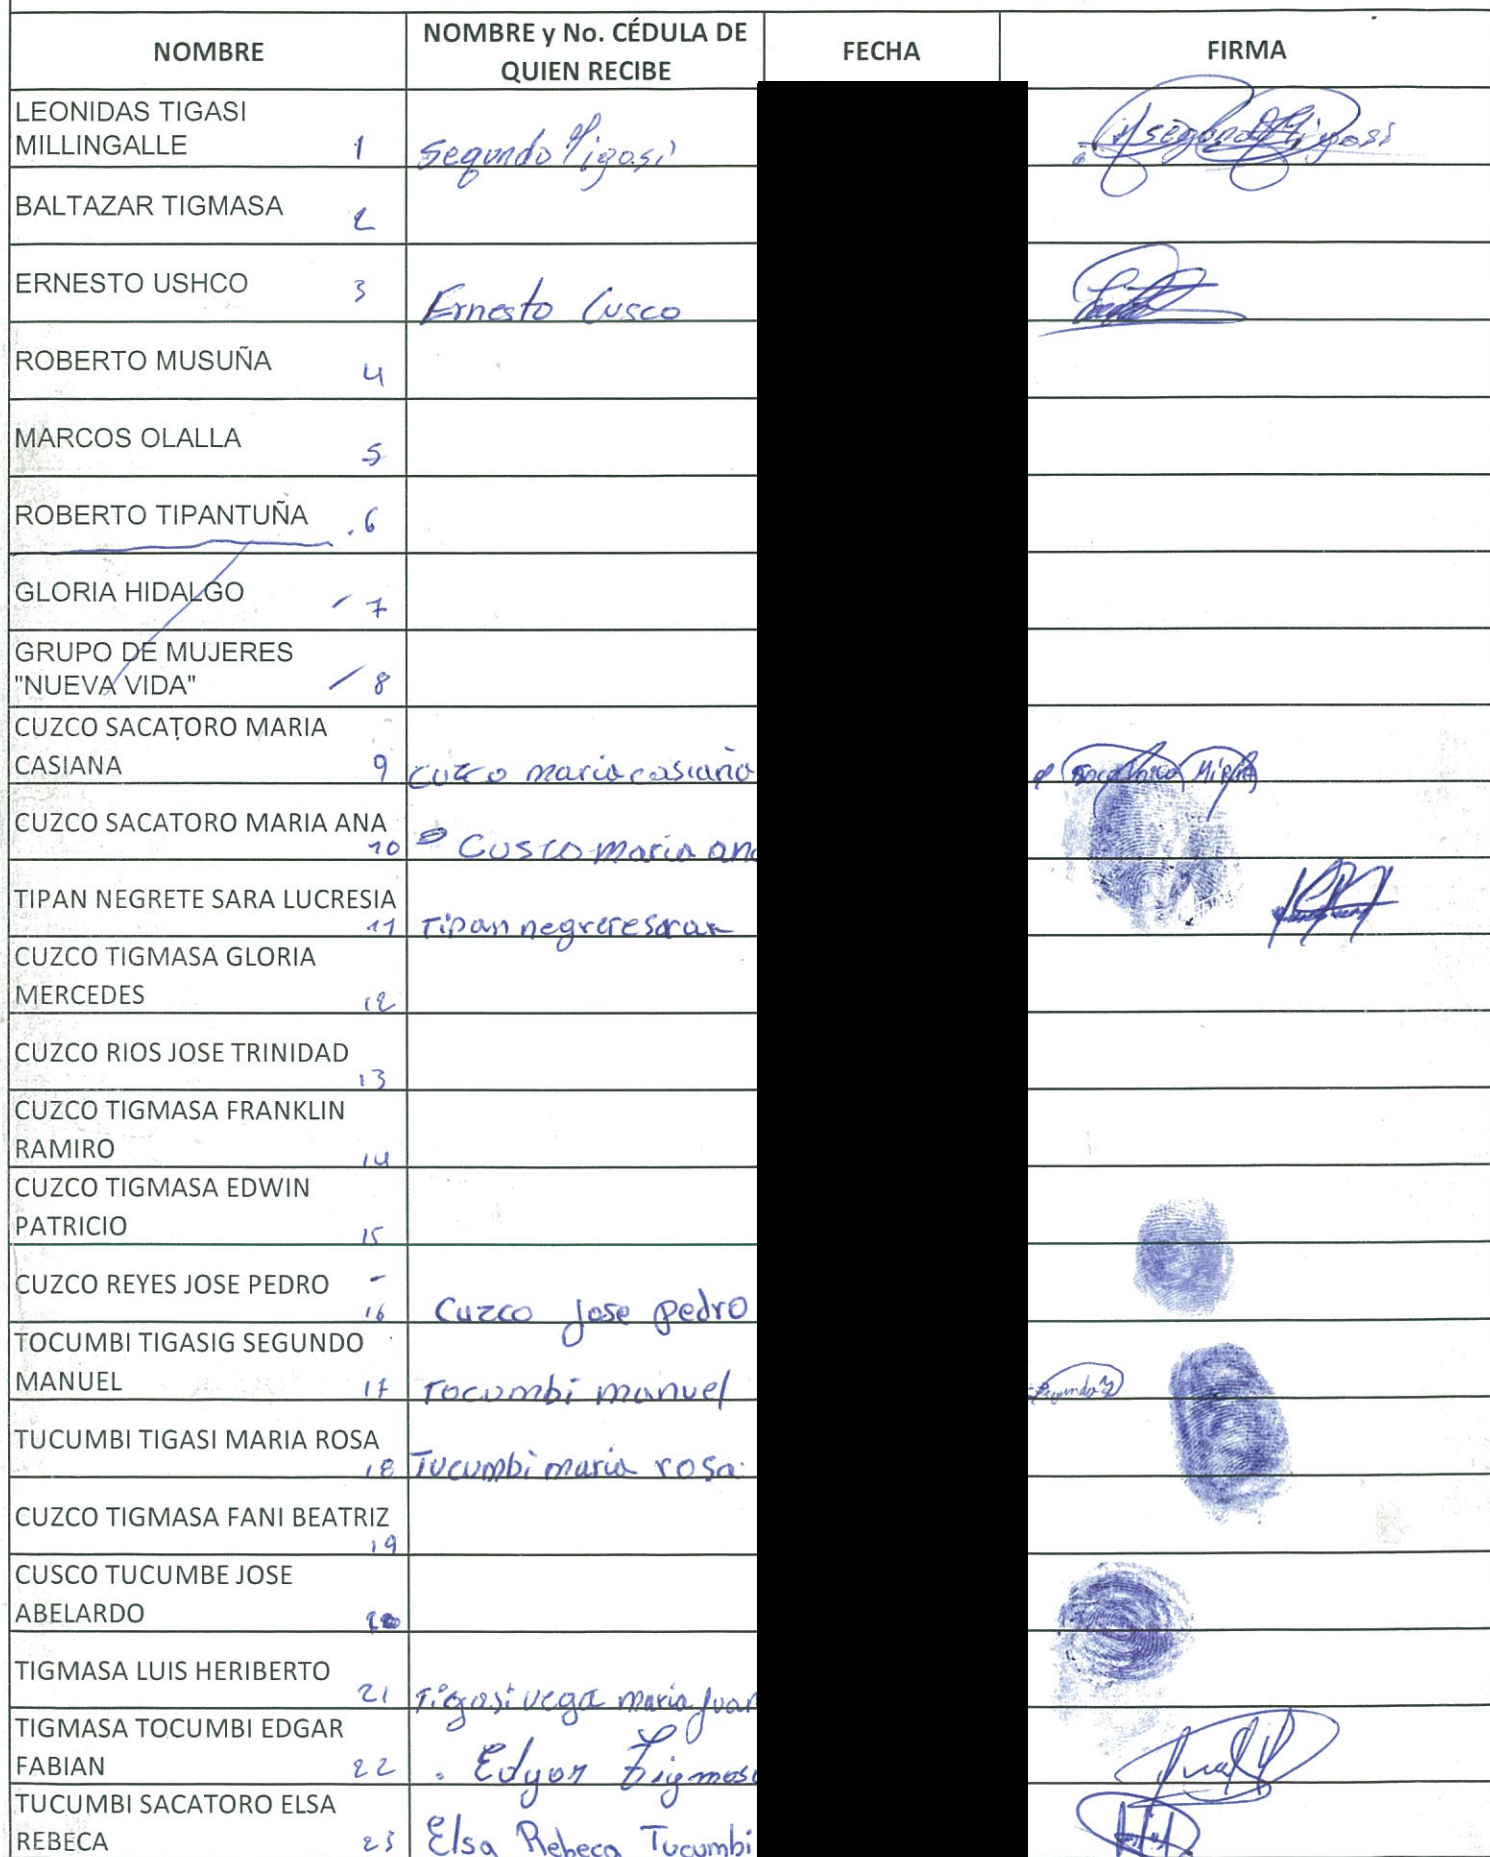 NOMBRE
NOMBRE y No. CÉDULA DE
QUIEN RECIBE
FECHA
FIRMA
LEONIDAS TIGASI
MILLINGALLE 1 Segundo Tigasi Segundo Tigasi
BALTAZAR TIGMASA 2
ERNESTO USHCO 3 Ernesto Cusco
ROBERTO MUSUÑA 4
MARCOS OLALLA 5
ROBERTO TIPANTUÑA 6
GLORIA HIDALGO 7
GRUPO DE MUJERES
"NUEVA VIDA" 8
CUZCO SACATORO MARIA
CASIANA 9 Cuzco maria casiana
CUZCO SACATORO MARIA ANA
10 Cusco maria ana
TIPAN NEGRETE SARA LUCRESIA
11 Tipan
CUZCO TIGMASA GLORIA
MERCEDES 12
CUZCO RIOS JOSE TRINIDAD
13
CUZCO TIGMASA FRANKLIN
RAMIRO 14
CUZCO TIGMASA EDWIN
PATRICIO 15
CUZCO REYES JOSE PEDRO -
16 Cuzco Jose pedro
TOCUMBI TIGASIG SEGUNDO
MANUEL 17 Tocumbi manuel
TUCUMBI TIGASI MARIA ROSA
18 Tucumbi maria rosa
CUZCO TIGMASA FANI BEATRIZ
19
CUSCO TUCUMBE JOSE
ABELARDO 20
TIGMASA LUIS HERIBERTO
21 Tigasi vega maria Juan
TIGMASA TOCUMBI EDGAR
FABIAN 22 Edgar Tigmas
TUCUMBI SACATORO ELSA
REBECA 23 Elsa Rebeca Tucumbi